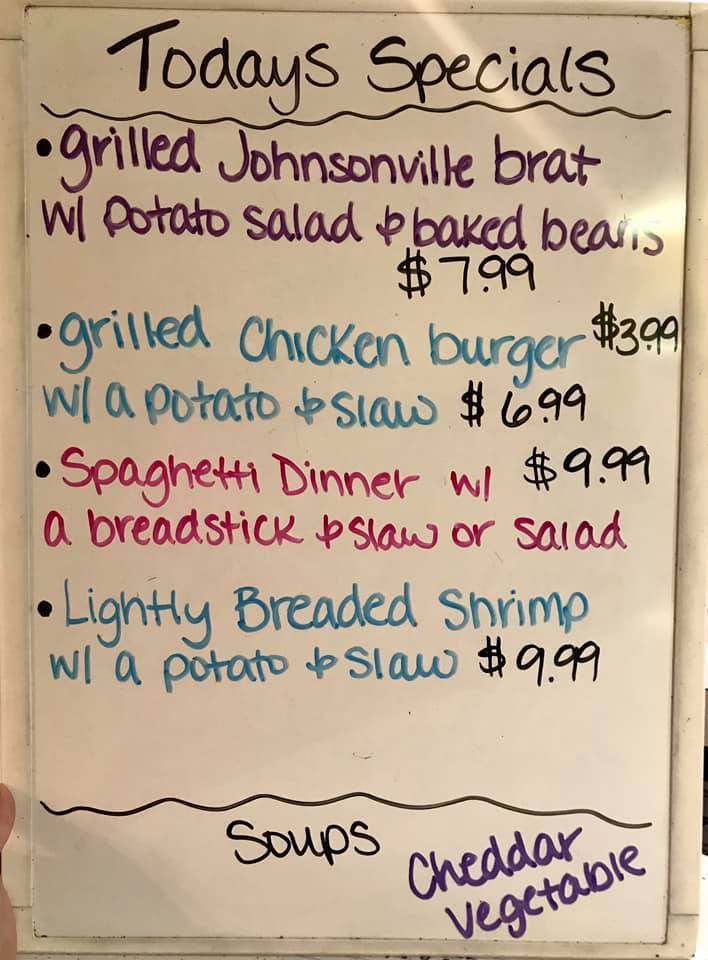 Todays Specials
• grilled Johnsonville brat
w/ potato salad & baked beans
$7.99
• grilled Chicken burger $3.99
w/ a potato & slaw $6.99
• Spaghetti Dinner w/ $9.99
a breadstick & slaw or salad
• Lightly Breaded Shrimp
w/ a potato & slaw $9.99
Soups
Cheddar
Vegetable